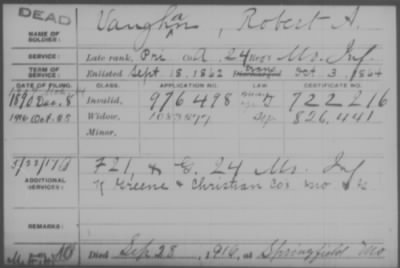 DEAD
NAME OF SOLDIER: Vaughan, Robert A.
SERVICE: Late rank, Pri Co. A, 24 Reg't Mo. Inf.
TERM OF SERVICE: Enlisted Sept 18, 1862 Oct. 3, 1864
DATE OF FILING. CLASS. APPLICATION NO. LAW. CERTIFICATE NO.
1890 Dec. 8 Invalid, 976498 722216
1916 Oct. Widow, 826,441
Minor,
ADDITIONAL SERVICES: F 21, & G. 24 Mo. Inf
Greene & Christian Cos. Mo
REMARKS:
Died Sep. 28, 1916, at Springfield Mo